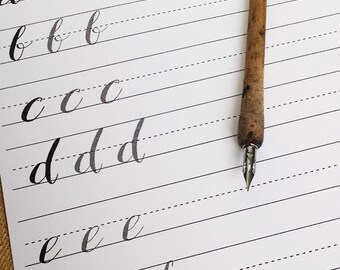 b b b
c c c
d d d
e e e